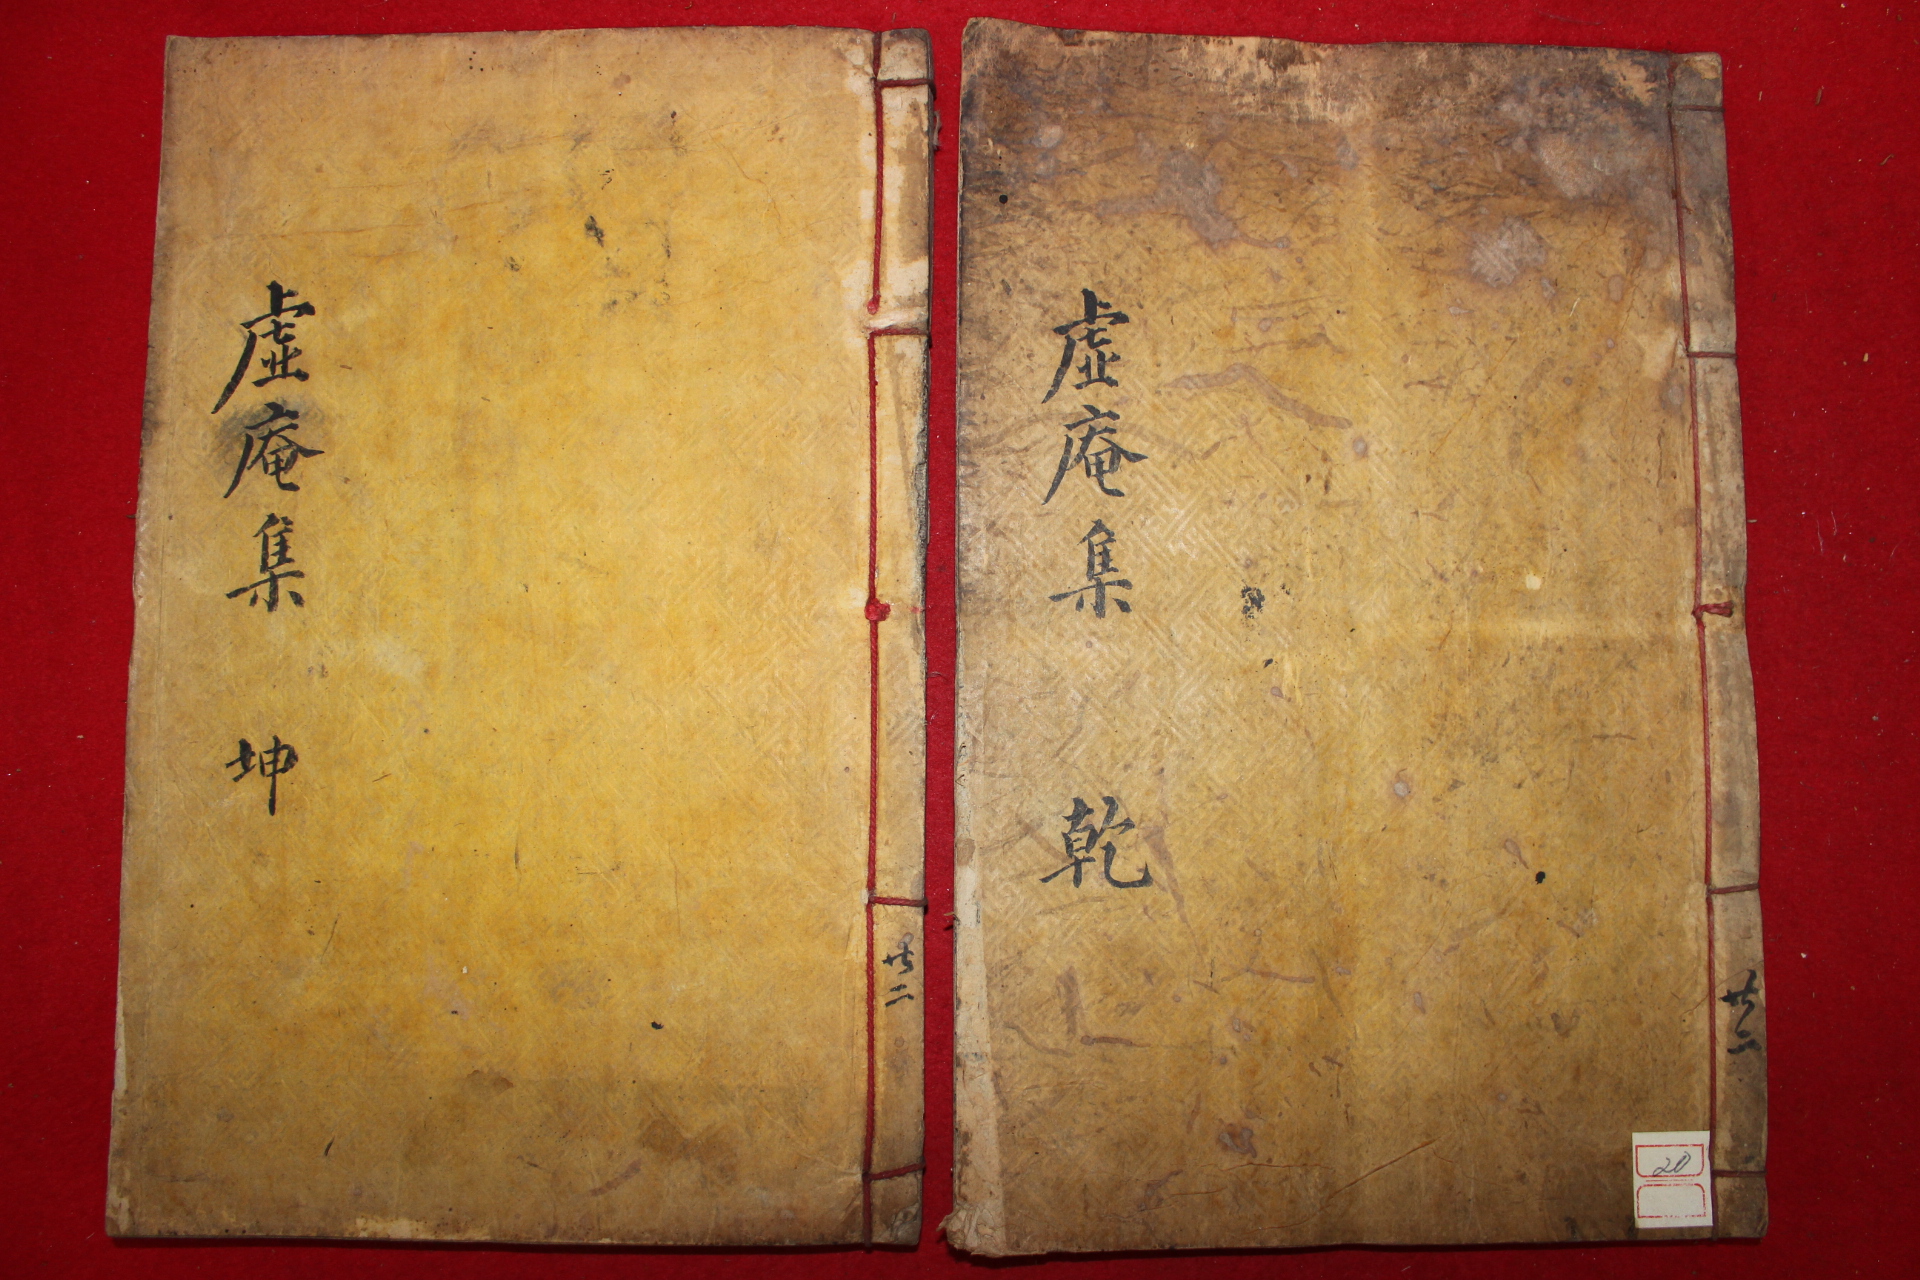 虛庵集 乾
共二
20
虛庵集 坤
共二